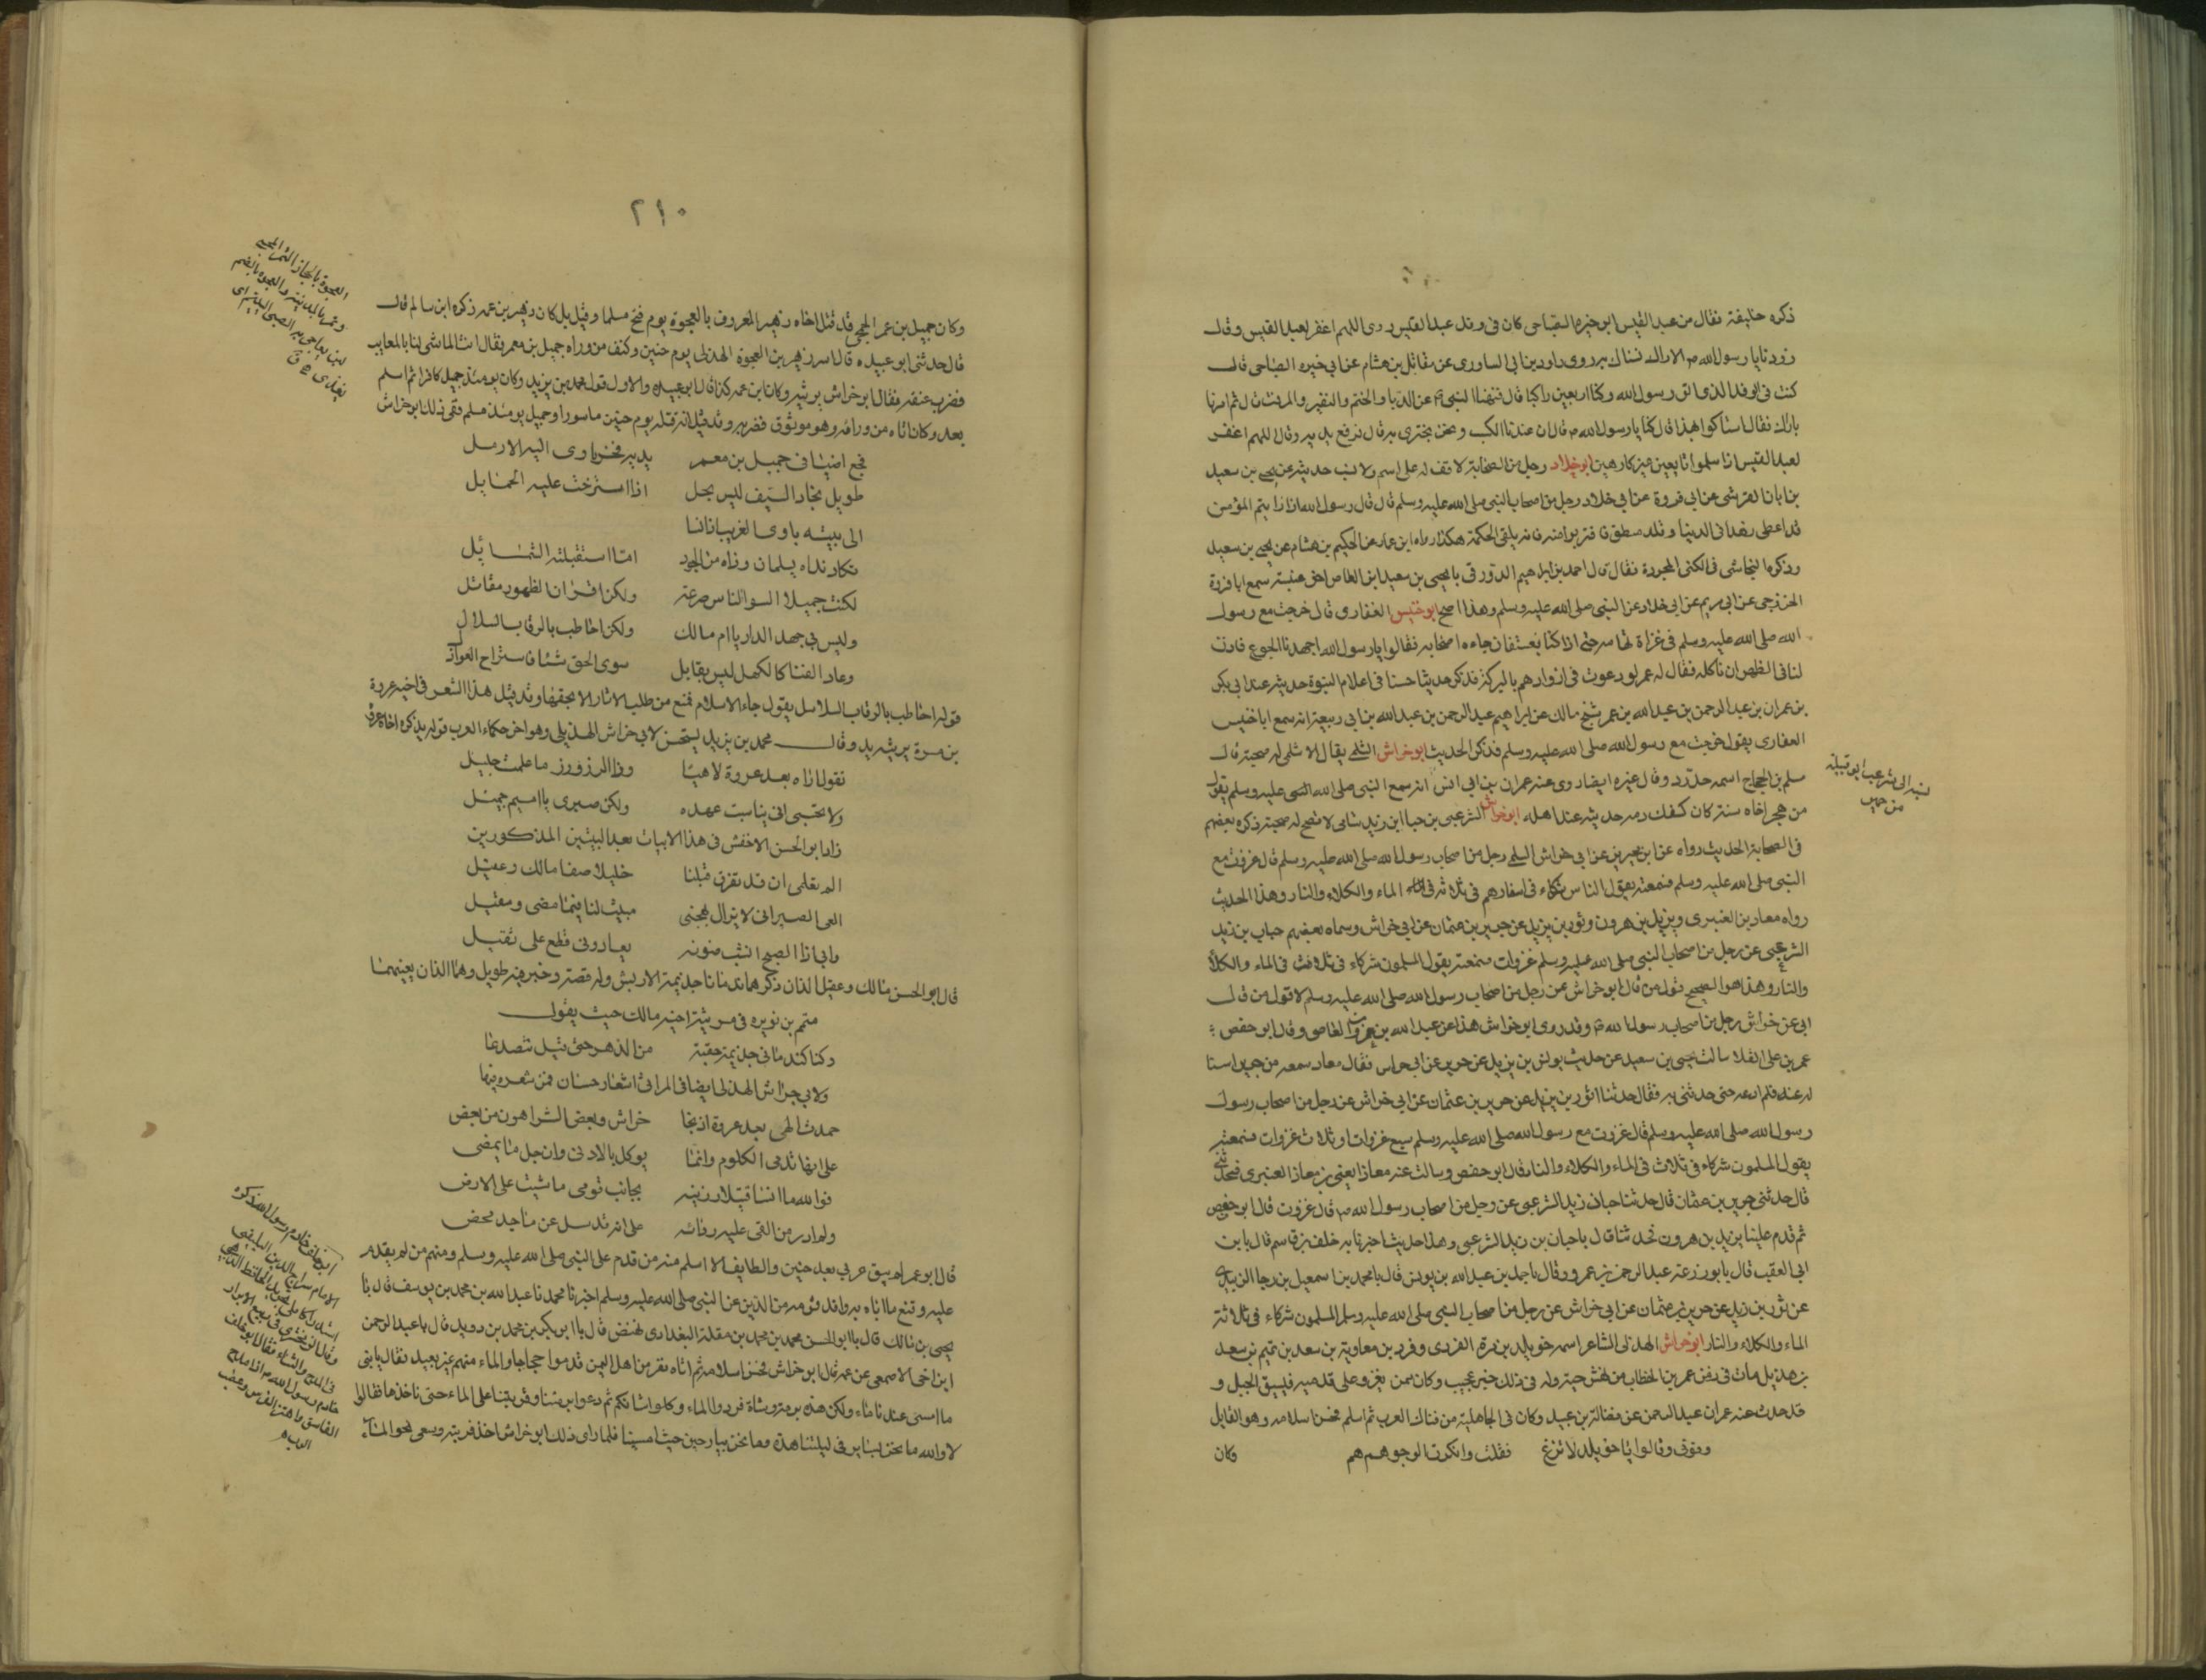 ذكره خليفة فقال من عبد القيس ابو خيره الصباحى كان فى وفد عبد القيس روى اللهم اغفر لعبد القيس وقال
زودنا يا رسول الله م الاراك نستاك به روى داود بن ابى المساورى عن مقاتل بن هشام عن ابى خيره الصباحى قال
كنت فى الوفد الذى اتى رسول الله وكنا اربعين راكبا قال فنهنا النبى عن الدبا والحنتم والنقير والمزفت قال ثم امر لنا
باراك فقال استاكوا بهذا قال قلنا يا رسول الله م ان عندنا العسب ونحن نجتزى به قال فرفع يديه وقال اللهم اغفر
لعبد القيس اذا سلموا طايعين غير كارهين ابو خلاد رجل من الصحابة لا اقف له على اسم ولا نسب حديثه عن يحيى بن سعيد
بن ابان القرشى عن ابى فروة عن ابى خلاد رجل من اصحاب النبى صلى الله عليه وسلم قال قال رسول الله اذا رايتم المؤمن
قد اعطى زهدا فى الدنيا وقلة منطق فاقتربوا منه فانه يلقى الحكمة هكذا رواه ابن عمار عن الحكيم بن هشام عن يحيى بن سعيد
وذكره البخارى فى الكنى المجردة فقال قال احمد بن ابراهيم الدورقى يا يحيى بن سعيد ابن العاص اخى عنبسة سمع ابا فروة
الجزرى عن ابى مريم عن ابى خلاد عن النبى صلى الله عليه وسلم وهذا اصح ابو خنيس الغفارى قال خرجت مع رسول
الله صلى الله عليه وسلم فى غزاة تهامه حتى اذا كنا بعسفان جاءه اصحابه فقالوا يا رسول الله اجهدنا الجوع فاذن
لنا فى الظهر ان ناكله فقال له عمر لو دعوت فى ازوادهم بالبركة فذكر حديثا حسنا فى اعلام النبوة حديثه عند ابى بكر
بن عمر بن عبد الرحمن بن عبد الله بن عمر شيخ مالك عن ابراهيم عبد الرحمن بن عبد الله بن ابى ربيعة انه سمع ابا خنيس
الغفارى يقول خرجت مع رسول الله صلى الله عليه وسلم فذكر الحديث ابو خراش السلمى يقال الاسلمى له صحبة قال
مسلم بن الحجاج اسمه حدرد وقال غيره ايضا روى عنه عمران بن ابى انس انه سمع النبى صلى الله عليه وسلم يقول
من هجر اخاه سنة كان كسفك دمه حديثه عند اهل ابو خراش الشرعبى بن حبا ابن زيد شامى لا تصح له صحبة ذكره بعضهم
فى الصحابة الحديث رواه عن ابى خراش السلمى رجل من اصحاب رسول الله صلى الله عليه وسلم قال غزوت مع
النبى صلى الله عليه وسلم فسمعته يقول الناس شركاء فى اسفارهم فى ثلاثة فى الماء والكلاء والنار وهذا الحديث
رواه معاذ بن العنبرى ويزيد بن هرون وثور بن يزيد عن حريز بن عثمان عن ابى خراش وسماه بعضهم حبان بن زيد
الشرعبى عن رجل من اصحاب النبى صلى الله عليه وسلم غزوات فسمعته يقول المسلمون شركاء فى ثلاث فى الماء والكلأ
والنار وهذا هو الصحيح قول من قال ابو خراش عن رجل من اصحاب رسول الله صلى الله عليه وسلم لا قول من قال
ابى عن خراش رجل من اصحاب رسول الله م وقد روى ابو خراش هذا عن عبد الله بن عمرو بن العاص وقال ابو حفص
عمر بن على الفلا سالت يحيى بن سعيد عن حديث يونس بن يزيد عن حريز عن ابى خراش فقال معاذ سمعه من حريز
له عنه فلم ادعه حتى حدثنى به فقال حدثنا ثور بن يزيد عن حريز بن عثمان عن ابى خراش عن رجل من اصحاب رسول
رسول الله صلى الله عليه وسلم قال غزوت مع رسول الله صلى الله عليه وسلم سبع غزوات او ثلاث غزوات فسمعته
يقول المسلمون شركاء فى ثلاث فى الماء والكلاء والنار قال ابو حفص وسالت عنه معاذا يعنى بن معاذ العنبرى فحدثنى
قال حدثنى حريز بن عثمان قال حدثنا حبان زيد الشرعبى عن رجل من اصحاب رسول الله م قال غزوت قال ابو حفص
ثم قدم علينا يزيد بن هرون فحدثنا قال يا حبان بن زيد الشرعبى وهذا حديثنا اخبرنا به خلف بن قاسم قال يا بن
ابى العقب قال يا بو زرعة عبد الرحمن بن عمرو وقال يا احمد بن عبد الله بن يونس قال يا محمد بن اسمعيل بن رجا الزبيدى
عن ثور بن زيد عن حريز بن عثمان عن ابى خراش عن رجل من اصحاب النبى صلى الله عليه وسلم المسلمون شركاء فى ثلاثة
الماء والكلاء والنار ابو خراش الهذلى الشاعر اسمه خويلد بن مرة القردى وقرد بن معاوية بن سعد بن تميم بن سعد
بن هذيل مات فى زمن عمر بن الخطاب من نهش حية وله فى ذلك خبر عجيب وكان ممن يغزو على قدميه فيسبق الخيل و
قد حدث عنه عمران عبد الرحمن عن فضالة بن عبيد وكان فى الجاهلية من فتاك العرب ثم اسلم فحسن اسلامه وهو القايل
رفونى وقالوا يا خويلد لا ترع فقلت وانكرت الوجوه هم هم
وكان
نسبه الى شرعب ابو قبيلة
من حمير
٢١٠
وكان جميل بن عمر الجمحى قد قتل اخاه زهير المعروف بالعجوة يوم فتح مسلما وقيل بل كان زهير بن عمه ذكره ابن سالم قال
قال حدثنى ابو عبيده قال اسر زهير بن العجوة الهذلى يوم حنين وكتف من وراه جميل بن معمر فقال انت الماشى لنا بالمعايب
فضرب عنقه فقال ابو خراش يرثيه وكان ابن عمه كذا قال ابو عبيده والاول قول محمد بن يزيد وكان يومئذ جميل كافرا ثم اسلم
بعد وكان اتاه من ورائه وهو موثوق فضربه وقد قيل انه قتله يوم حنين ماسورا وجميل يومئذ مسلم ففى ذلك ابو خراش
فجع اضيافى جميل بن معمر بذى فجر تاوى اليه الارامل
طويل نجاد السيف ليس بحل اذا استرخت عليه الحمايل
الى بيته ياوى الغريب اذا
تكاد يداه يسلمان رداه من الجود اما استقبلته الشمائل
لكنت جميلا اسوا الناس صرعة ولكن اقران الظهور مقاتل
وليس بى جهد الدار يا ام مالك ولكن احاطت بالرقاب السلاسل
وعاد الفتى كالكهل ليس بقايل سوى الحق شيئا فاستراح العواذل
قوله احاطت بالرقاب السلاسل يقول جاء الاسلام فمنع من طلب الاثار الا بحقها وقد قيل هذا الشعر فى اخيه عروة
بن مرة يرثيه يد وقال محمد بن يزيد ليستحسن لابى خراش الهذيلى وهو احد حكماء العرب قوله يذكر اخاه عروة
تقول اراه بعد عروة لاهيا وذا الرزو رز ما علمت جليل
ولا تحسبى انى تناسيت عهده ولكن صبرى يا اميم جميل
زاد ابو الحسن الاخفش فى هذا الابيات بعد البيتين المذكورين
الم تعلمى ان قد تفرق قبلنا خليلا صفا مالك وعقيل
ابى الصبر انى لا يزال يهيجنى مبيت لنا فيما مضى ومقيل
وانى اذا الصبح انست ضوئه يعاودنى قطع على ثقيل
قال ابو الحسن مالك وعقيل الذان ذكرهما ندمانا جذيمة الابرش وله قصة وخبر فيه طويل وهما الذان يعنيهما
متمم بن نويره فى مرثية اخيه مالك حيث يقول
وكنا كندمانى جذيمة حقبة من الدهر حتى قيل نتصدعا
ولابى خراش الهذلى ايضا فى المراثى اشعار حسان فمن شعره فيها
حمدت الهى بعد عروة اذ نجا خراش وبعض الشر اهون من بعض
على انها تدمى الكلوم وانما يوكل بالادنى وان جل ما يمضى
فوالله ما انسا قتيلا رزيته بجانب قومى ما مشيت على الارض
ولم ادر من القى عليه ردائه على انه قد سل عن ماجد محض
قال ابو عمر لم يبق عربى بعد حنين والطايف الا اسلم منه من قدم على النبى صلى الله عليه وسلم ومنهم من لم يقدم
عليه وقنع بما اتاه به وافد قومه من الدين عن النبى صلى الله عليه وسلم اخبرنا محمد نا عبد الله بن محمد بن يوسف قال نا
يحيى بن مالك قال يا ابو الحسن محمد بن محمد بن مقلة البغدادى قال يا ابو بكر بن محمد بن دريد قال يا عبد الرحمن
ابن اخى الاصمعى عن عمه قال ابو خراش فحسن اسلامه ثم اتاه نفر من اهل اليمن قدموا حجاجا والماء منهم غير بعيد فقال يا بنى
ما امسى عندنا ماء ولكن هذه برمة وشاة فردوا الماء وكلوا شاتكم ثم دعوا برمتنا وقربتنا على الماء حتى ناخذها فقالوا
لا والله ما نحن بسايرين فى ليلتنا هذه وما نحن ببارحين حيث امسينا فلما راى ذلك ابو خراش اخذ قربته وسعى نحو الماء
العجوة بالحجاز التمر المحشى
وتمر بالمدينة والعجوه بالضم
لبن يعاجى به الصبى اليتيم اى
يغذى ق
ابو خادم رسول الله ذكره
الامام سراج الدين البلقينى
وقال الزمخشرى فى ربيع الابرار